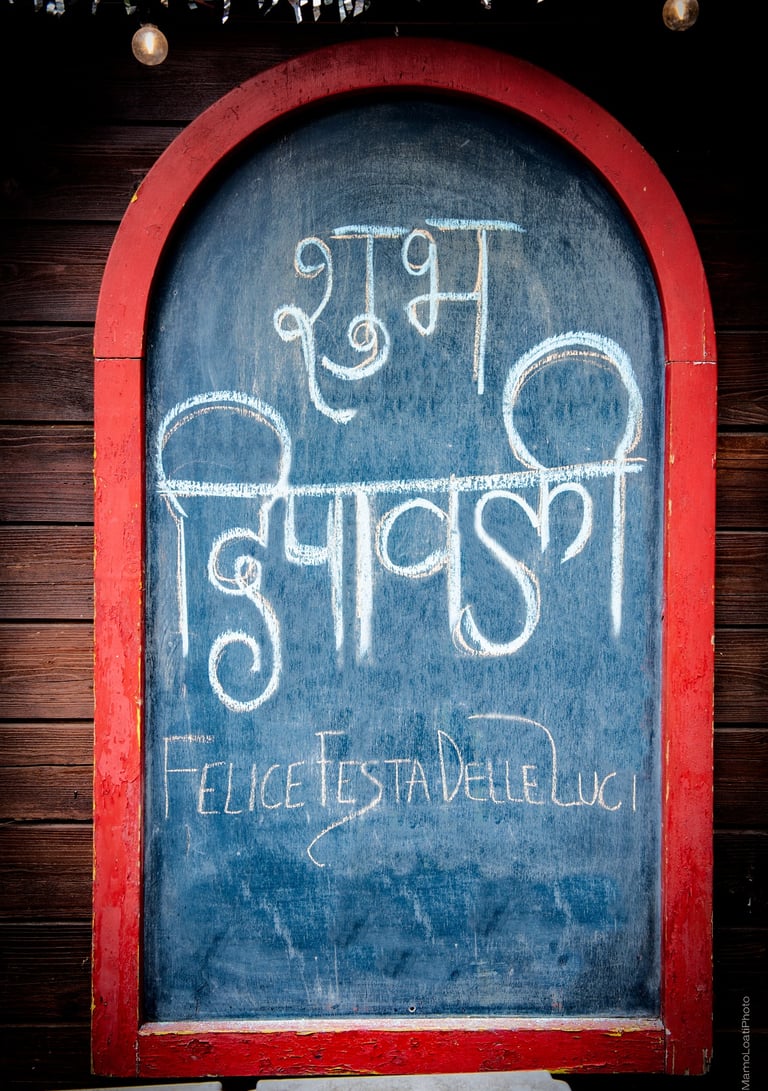 शुभ
दिपावली
FELICE FESTA DELLE LUCI
MamoLoatiPhoto